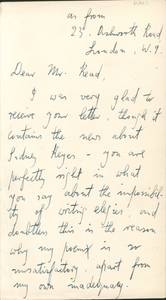 as from
23, Ashworth Road
London, W.9.
Dear Mr. Read,
I was very glad to
receive your letter, though it
contains the news about
Sidney Keyes - you are
perfectly right in what
you say about the impossibil-
ity of writing elegies, and
doubtless this is the reason
why my poem is so
unsatisfactory, apart from
my own inadequacy.